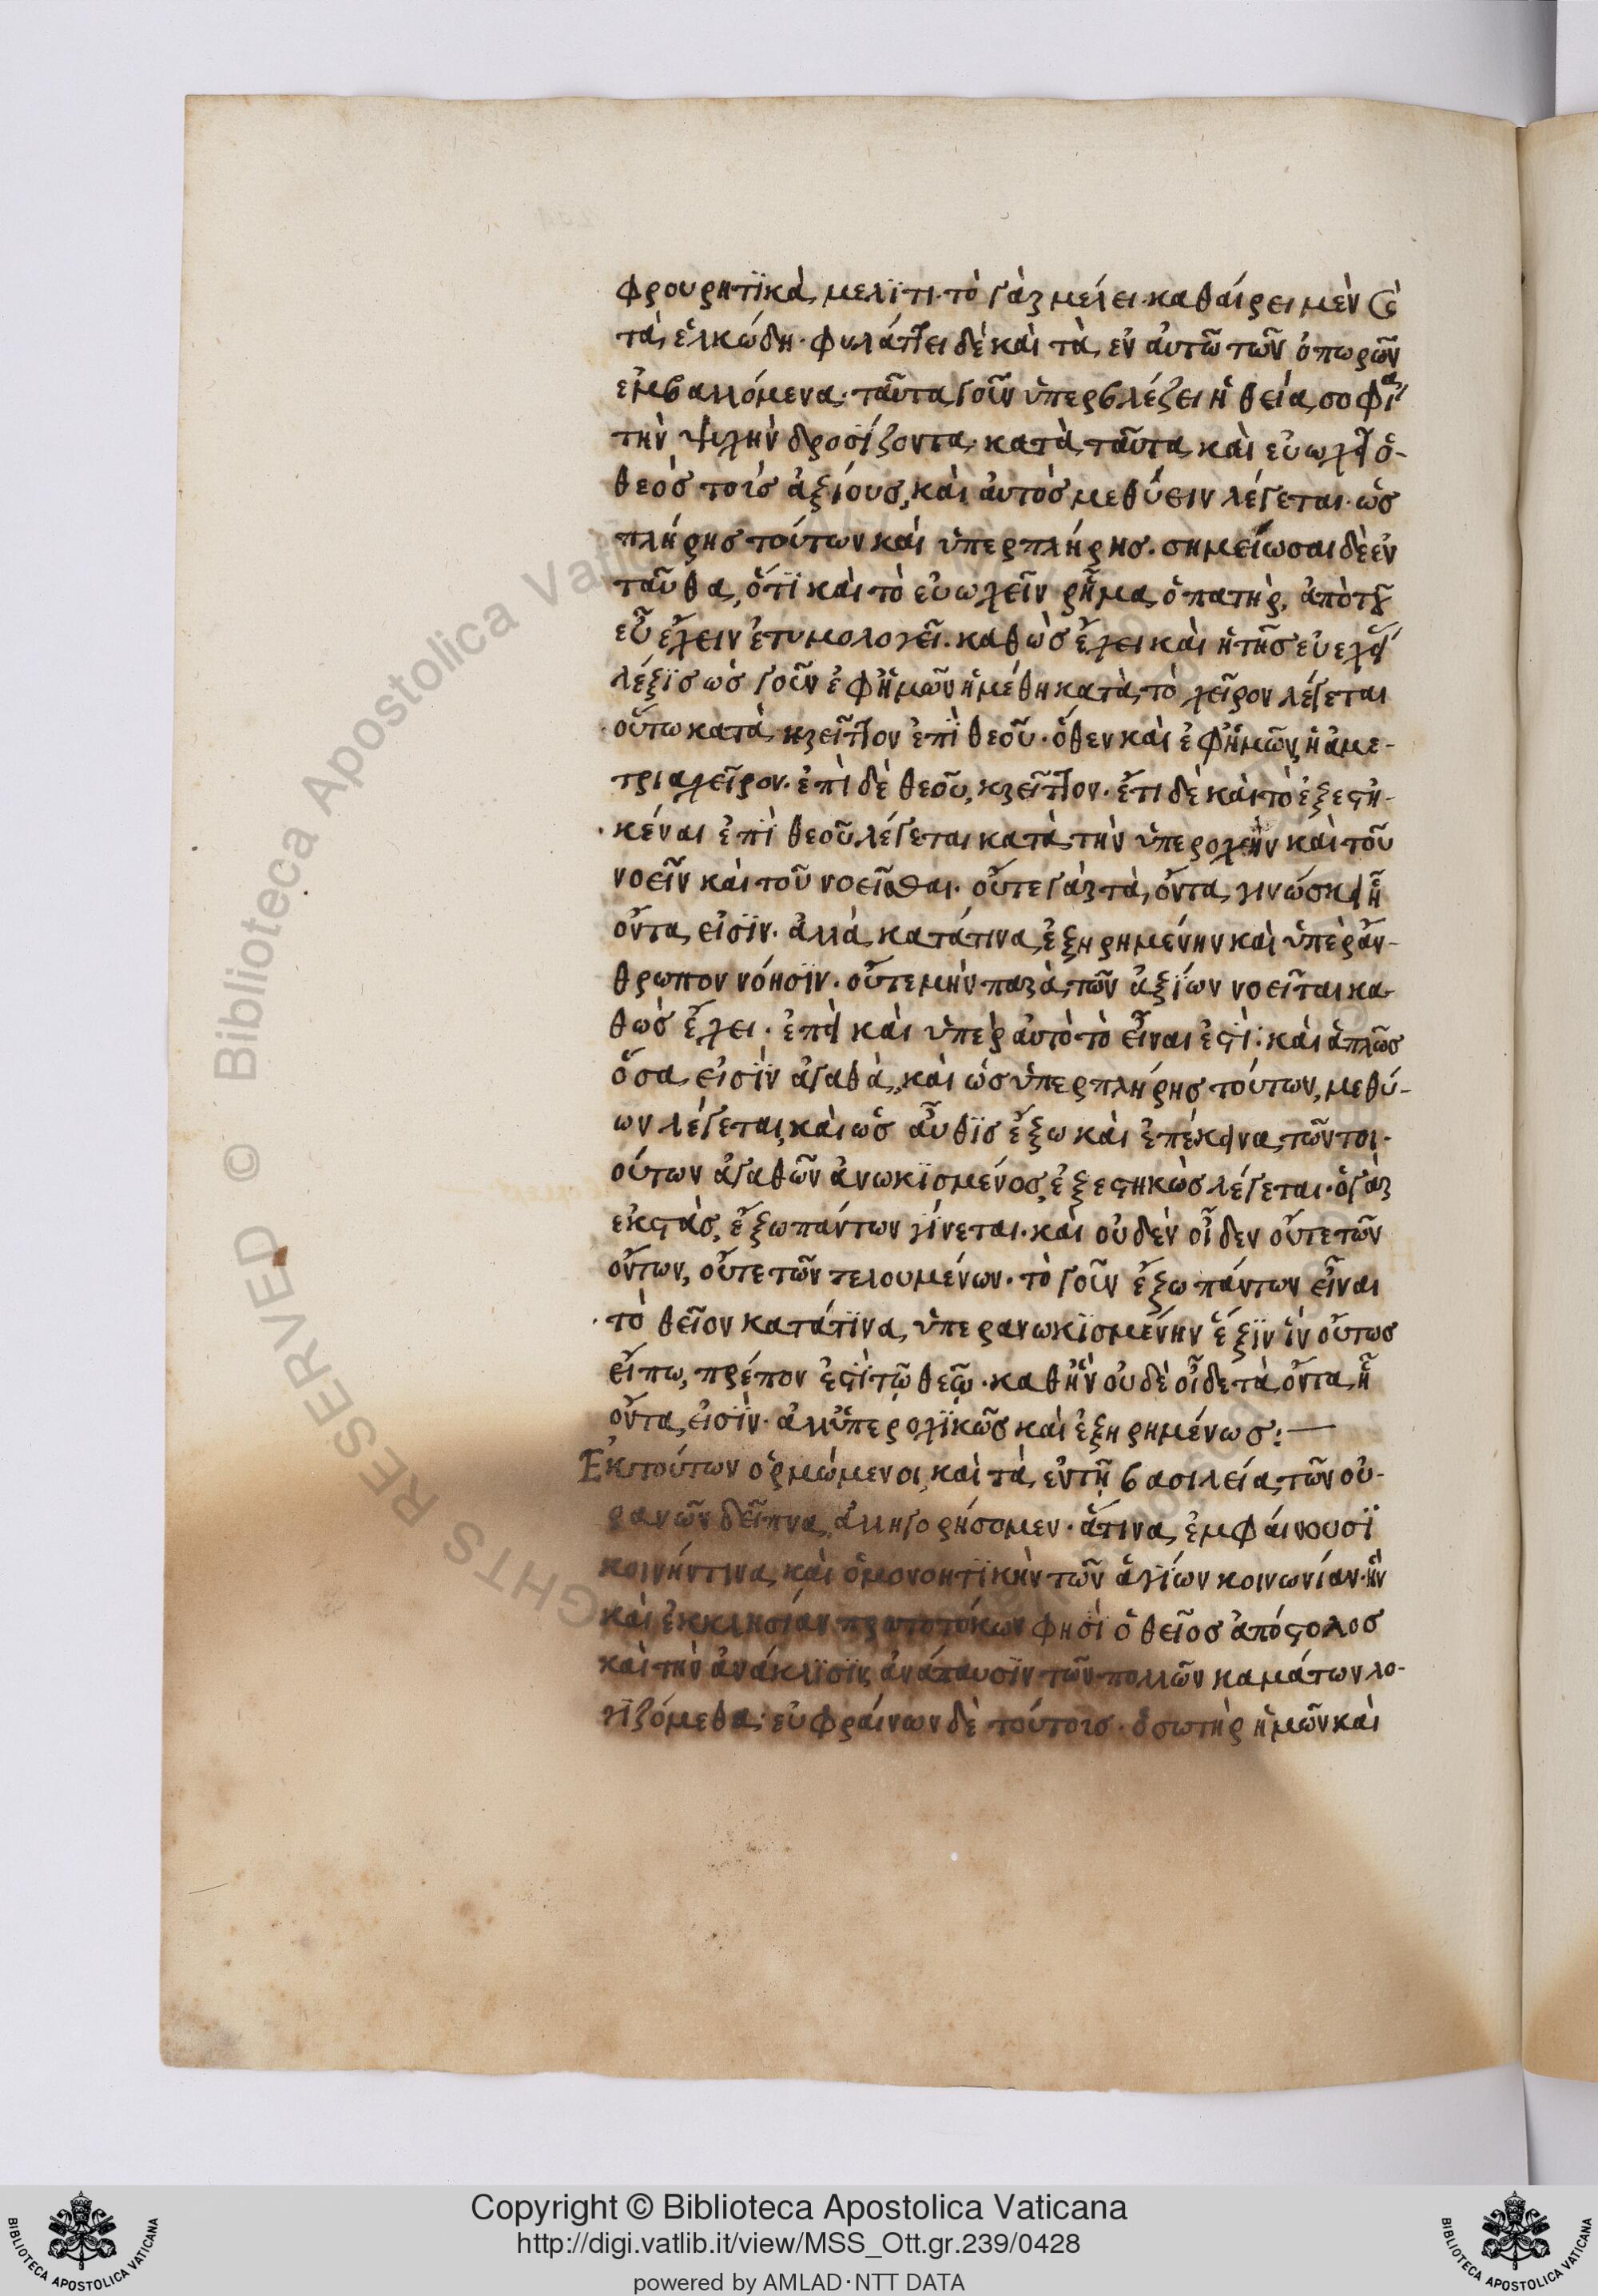 φρουρητϊκὰ, μελϊτι· τὸ γὰρ μέλει καθαίρει μὲν καὶ
τὰ ἑλκώδη· φυλάττει δὲ καὶ τὰ ἐν ἀυτῶ τῶν ὀπωρῶν
ἐμβαλλόμενα· ταῦτα γοῦν ὑπερβλέζει ἡ θεία σοφία
τὴν ψυχὴν δροσίζοντα· κατὰ ταῦτα καὶ εὐωχεῖ ὁ-
θεὸσ τοὶσ ἀξίουσ, καὶ ἀυτὸσ μεθύειν λέγεται· ὡσ
πλήρησ τούτων καὶ ὑπερπλήρησ. σημείωσαι δὲ ἐν
ταῦθα, ὅτϊ καὶ τὸ εὐωχεῖν ρῆμα ὁ πατὴρ, ἀπὸ τοῦ
εὖ ἔχειν ἐτυμολογεῖ. καθὼσ ἔχει καὶ ἡ τῆσ εὐεχεί
λέξϊσ ὡσ γοῦν ἐφἡμῶν ἡ μέθη κατὰ τὸ χεῖρον λέγεται
οὕτω κατὰ κρεῖττον ἐπϊ θεοῦ· ὅθεν καὶ ἐφἡμῶν, ἡ ἀμε-
τρια χεῖρον· ἐπὶ δὲ θεοῦ, κρεῖττον· ἔτι δὲ καὶ τὸ ἐξεστη-
κέναι ἐπϊ θεοῦ λέγεται κατὰ τὴν ὑπεροχὴν καὶ τοῦ
νοεῖν καὶ τοῦ νοεῖσθαι· οὔτε γὰρ τὰ ὄντα γινώσκει ἧ
ὄντα εἰσϊν· ἀλλὰ κατάτινα ἐξηρημένην καὶ ὑπὲρ ἄν-
θρωπον νόησϊν· οὔτε μὴν παρὰ τῶν ἀξϊων νοεῖται κα
θὼσ ἔχει· ἐπεὶ καὶ ὑπὲρ ἀυτὸ τὸ εἶναι ἐστϊ· καὶ ἁπλῶσ
ὅσα εἰσϊν ἀγαθὰ, καὶ ὡσ ὑπερπλήρησ τούτων, μεθύ-
ων λέγεται, καὶ ὡσ αὖθϊσ ἔξω καὶ ἐπέκεινα τῶν τοι-
ούτων ἀγαθῶν ἀνωκϊσμένοσ, ἐξεστηκὼσ λέγεται· ὁ γὰρ
ἐκστὰσ, ἔξω πάντων γίνεται· καὶ οὐδὲν οἶδεν οὔτε τῶν
ὄντων, οὔτε τῶν τελουμένων· τὸ γοῦν ἔξω πάντων εἶναι
τὸ θεῖον κατάτϊνα ὑπερανωκϊσμένην ἕξϊν ἱν οὕτωσ
εἴπω, πρέπον ἐστϊ τῷ θεῷ· καθ ἣν οὐδὲ οἶδε τὰ ὄντα, ἧ
ὄντα εἰσϊν· ἀλλ ὑπεροχϊκῶσ καὶ ἐξηρημένωσ:—
Ἐκ τούτων ὁρμώμενοι, καὶ τὰ ἐν τῇ βασιλεία τῶν οὐ-
ρανῶν δεῖπνα, ἀλληγορήσομεν· ἅτινα ἐμφάινουσϊ
κοινήν τινα καὶ ὁμονοητϊκὴν τῶν ἁγϊων κοινωνίαν· ἣν
καὶ ἐκκλησίαν πρωτοτόκων φησϊ ὁ θεῖοσ ἀπόστολοσ
καὶ τὴν ἀνάκλϊσϊν, ἀνάπαυσϊν τῶν πολλῶν καμάτων λο-
γϊζόμεθα· εὐφραίνων δὲ τούτοισ· ὁ σωτὴρ ἡμῶν καὶ
© Biblioteca Apostolica Vaticana
RIGHTS RESERVED
BIBLIOTECA APOSTOLICA VATICANA
Copyright © Biblioteca Apostolica Vaticana
http://digi.vatlib.it/view/MSS_Ott.gr.239/0428
powered by AMLAD·NTT DATA
BIBLIOTECA APOSTOLICA VATICANA